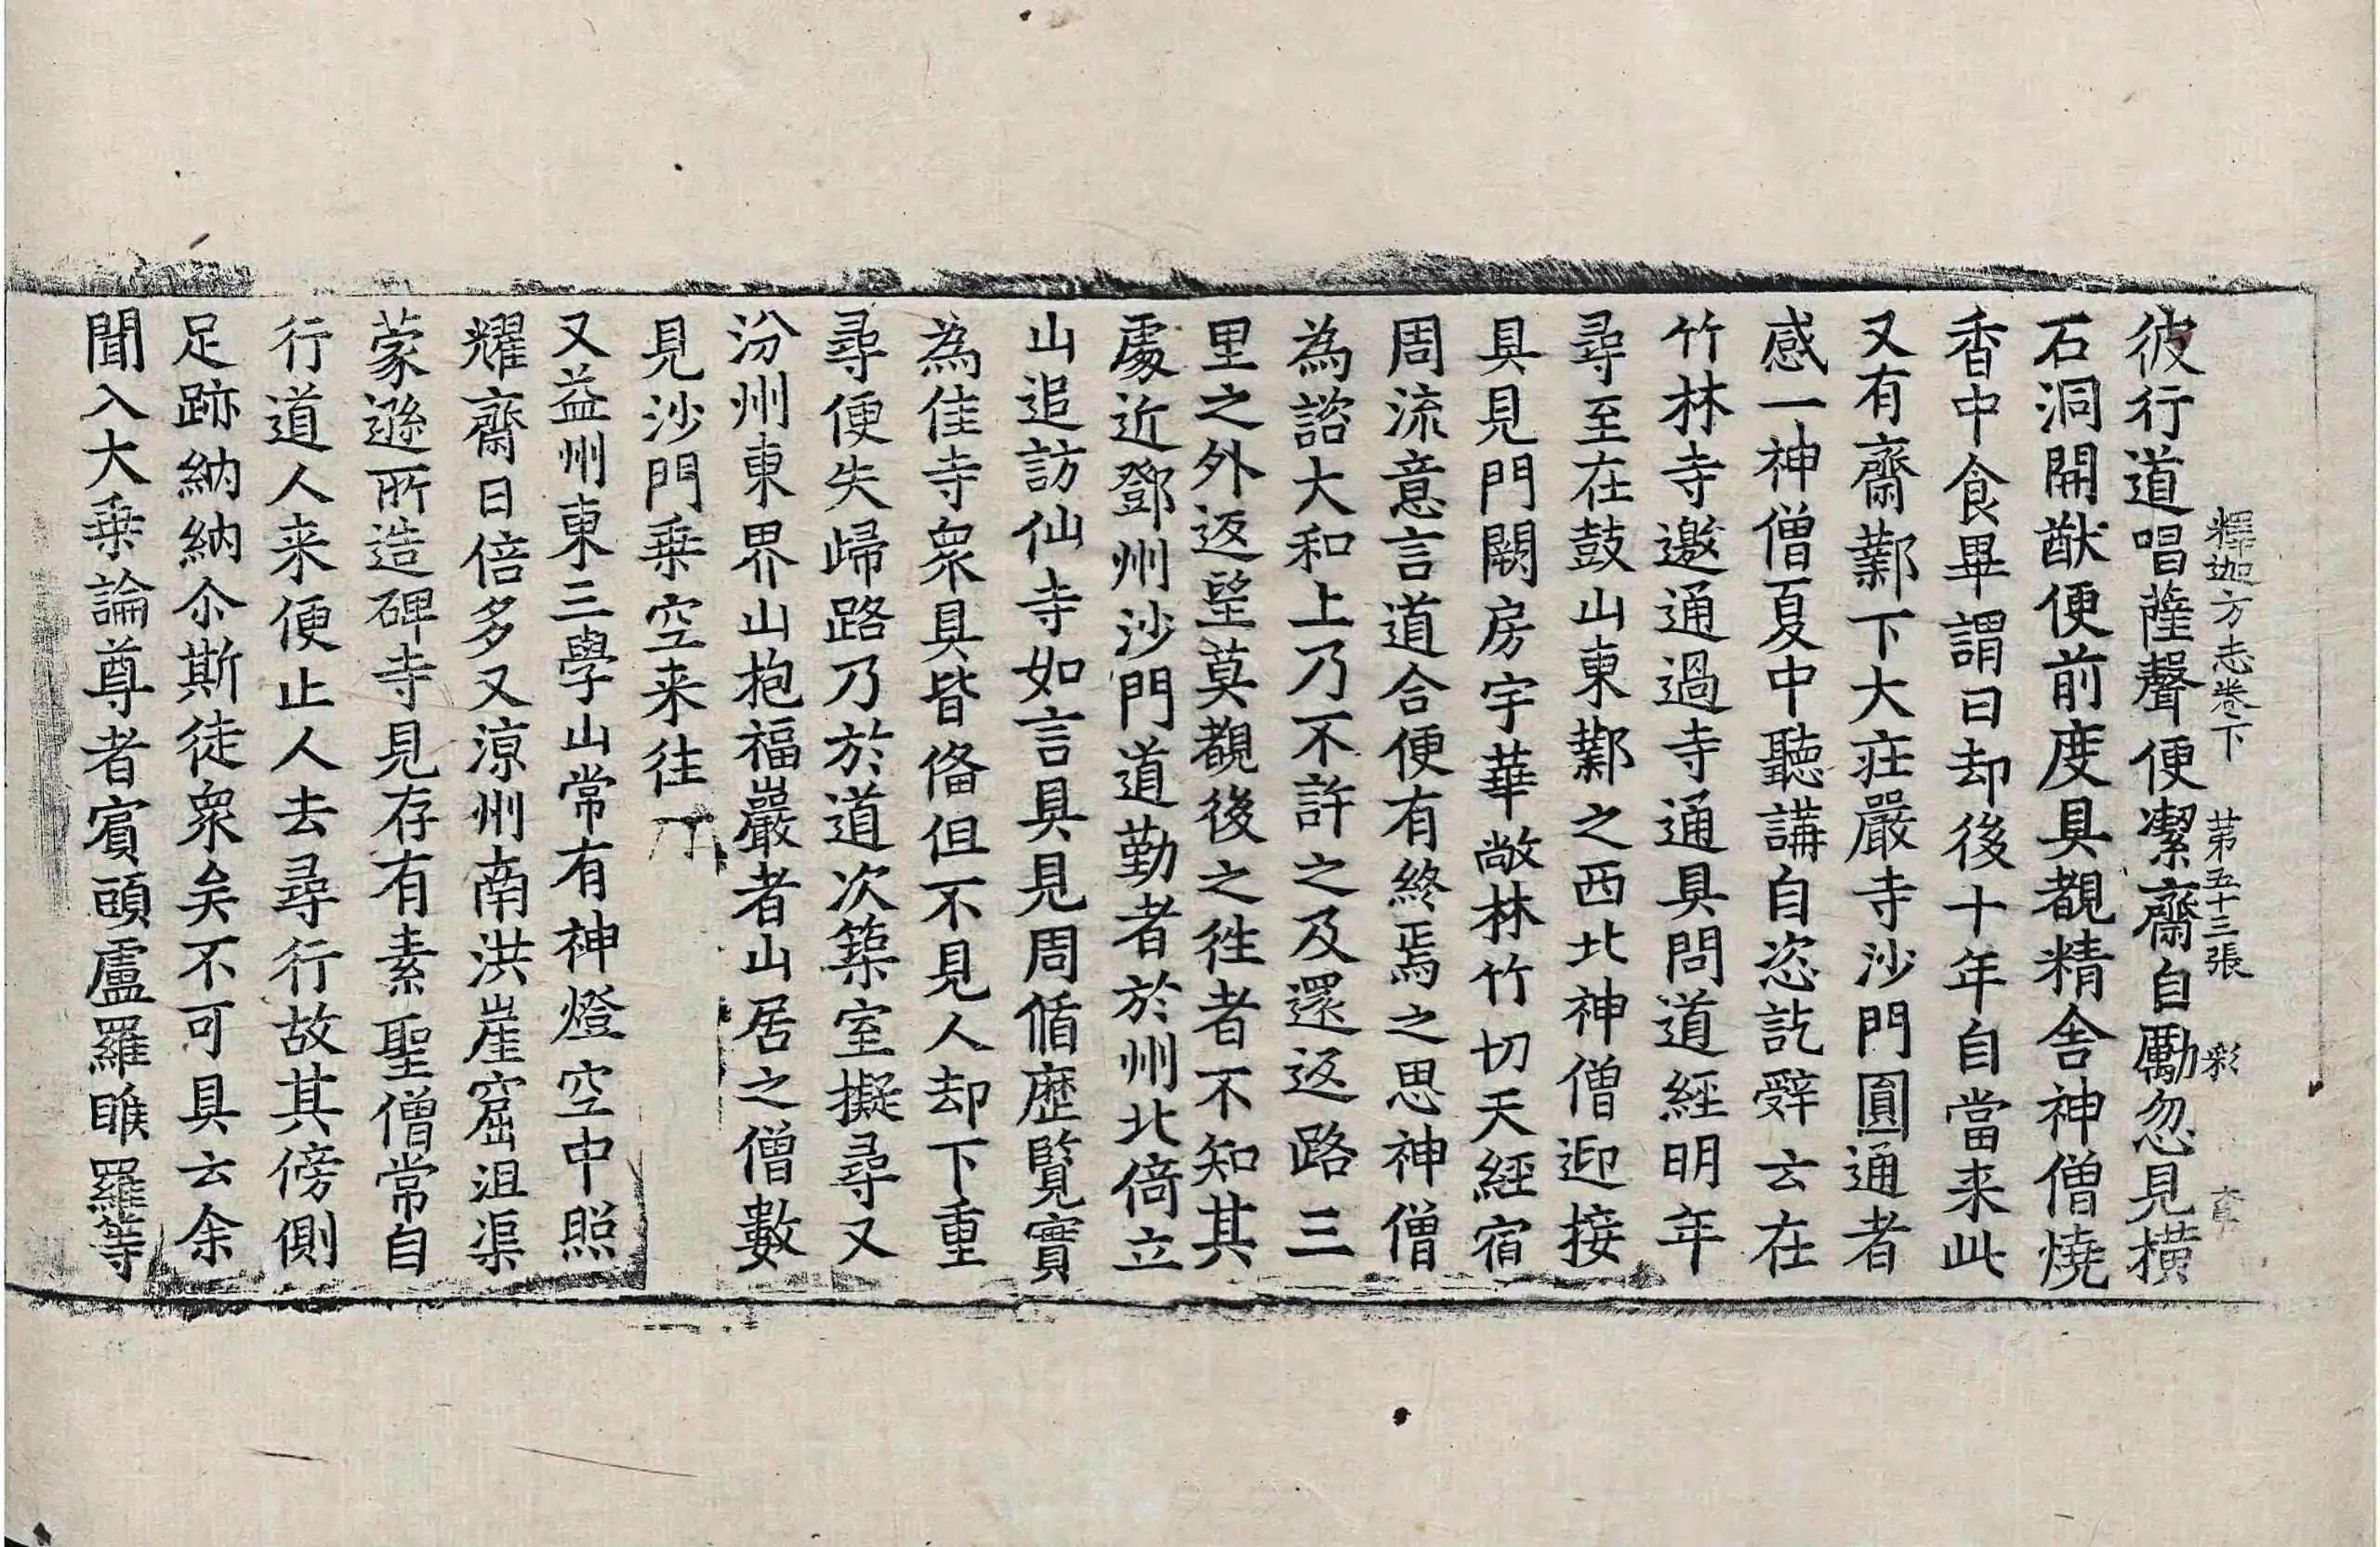 彼行道唱薩聲便潔齋自勵忽見橫
釋迦方志卷下 第五十三張 彩
石洞開猷便前度具覩精舍神僧燒
香中食畢謂曰却後十年自當来此
又有齋鄴下大莊嚴寺沙門圓通者
感一神僧夏中聽講自恣訖辤云在
竹林寺邀通過寺通具問道經明年
尋至在鼓山東鄴之西北神僧迎接
具見門闕房宇華敞林竹切天經宿
周流意言道合便有終焉之思神僧
為諮大和上乃不許之及還返路三
里之外返望莫覩後之徃者不知其
處近鄧州沙門道勤者於州北倚立
山追訪仙寺如言具見周循歷覽實
為佳寺衆具皆俻但不見人却下重
尋便失歸路乃於道次築室擬尋又
汾州東界山抱福巖者山居之僧數
見沙門乗空来往
又益州東三學山常有神燈空中照
耀齋日倍多又涼州南洪崖窟沮渠
蒙遜所造碑寺見存有素聖僧常自
行道人来便止人去尋行故其傍側
足跡納納尒斯徒衆矣不可具云余
聞入大乗論尊者賓頭盧羅睺羅等